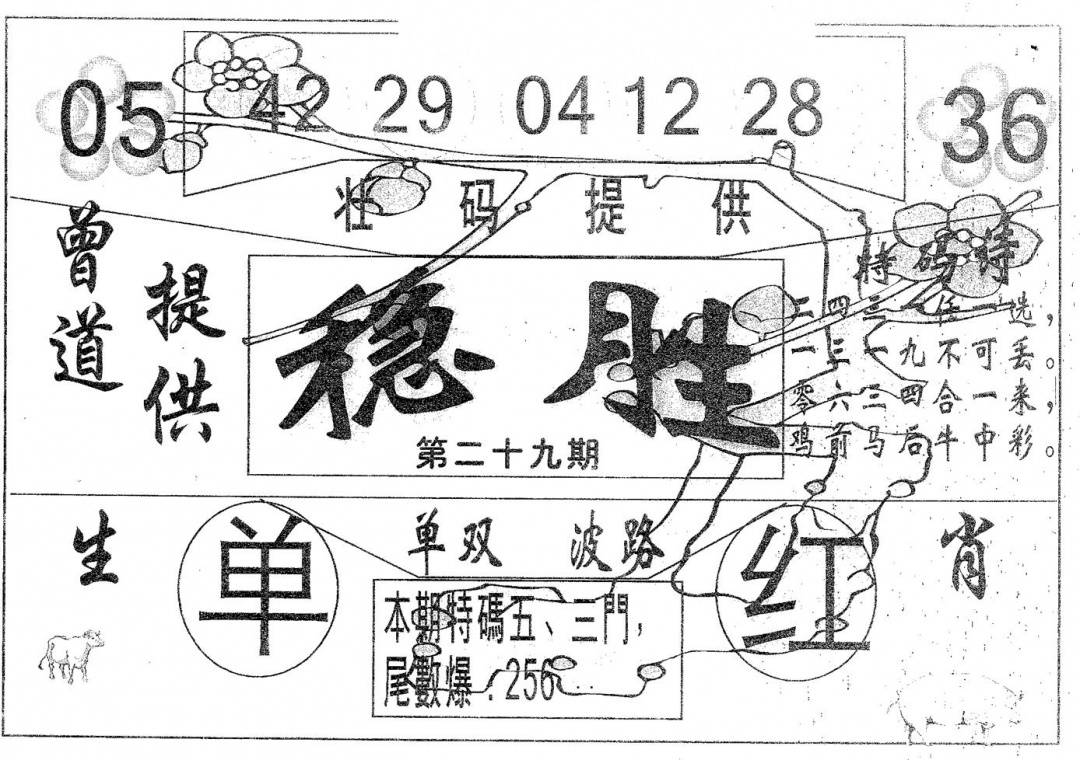 05 42 29 04 12 28 36
壮码提供
曾道
提供
稳胜
第二十九期
特码诗
三四三一任一选，
一三一九不可丢。
零六三四合一来，
鸡前马后牛中彩。
生肖
单
单双 波路
红
本期特碼五、三門，
尾數爆：256